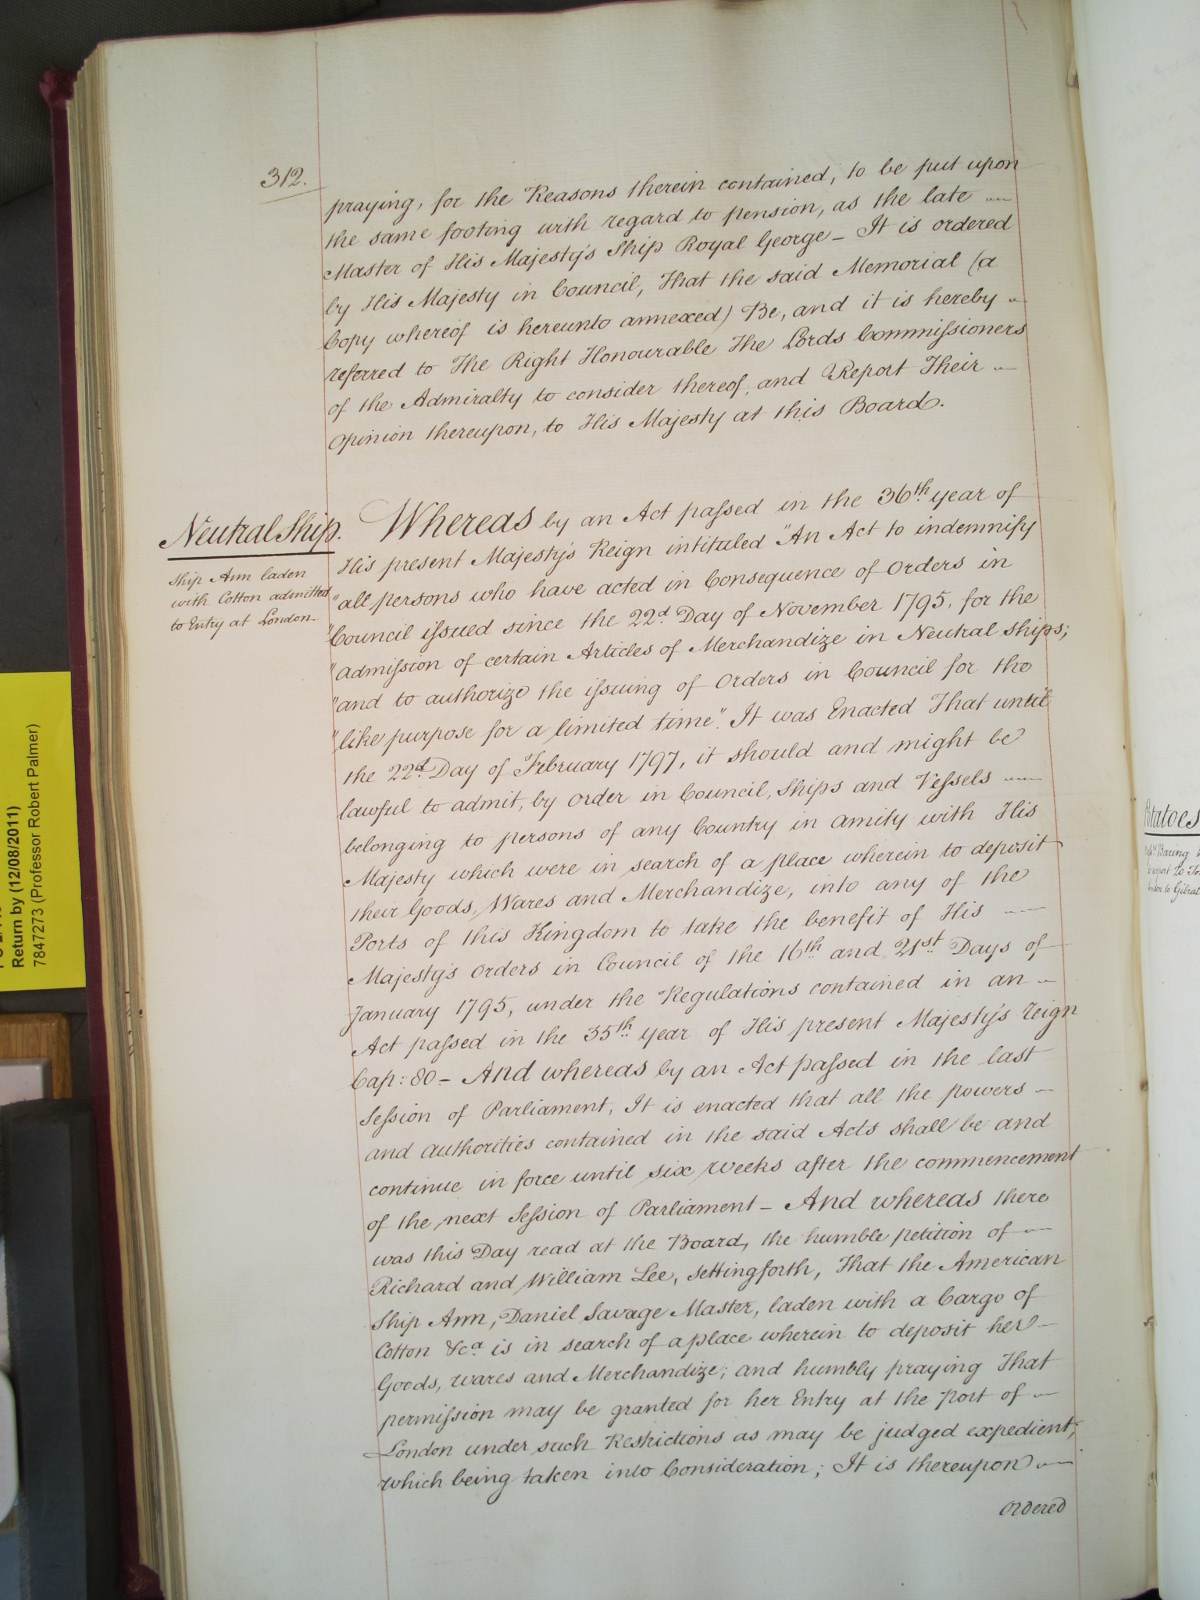 312.
praying, for the Reasons therein contained, to be put upon
the same footing with regard to pension, as the late
Master of His Majesty's Ship Royal George – It is ordered
by His Majesty in Council, That the said Memorial (a
Copy whereof is hereunto annexed) Be, and it is hereby
referred to The Right Honourable The Lords Commissioners
of the Admiralty to consider thereof, and Report Their
Opinion thereupon, to His Majesty at this Board.
Neutral Ship.
Ship Ann laden
with Cotton admitted
to Entry at London.
Whereas by an Act passed in the 36th year of
His present Majesty's Reign intituled "An Act to indemnify
"all persons who have acted in Consequence of Orders in
"Council issued since the 22d Day of November 1795, for the
"admission of certain Articles of Merchandize in Neutral Ships;
"and to authorize the issuing of Orders in Council for the
"like purpose for a limited time". It was Enacted That until
the 22d Day of February 1797, it should and might be
lawful to admit, by Order in Council, Ships and Vessels
belonging to persons of any Country in amity with His
Majesty which were in search of a place wherein to deposit
their Goods, Wares and Merchandize, into any of the
Ports of this Kingdom to take the benefit of His
Majesty's Orders in Council of the 16th and 21st Days of
January 1795, under the Regulations contained in an
Act passed in the 35th year of His present Majesty's reign
Cap: 80 – And whereas by an Act passed in the last
Session of Parliament, It is enacted that all the powers
and authorities contained in the said Acts shall be and
continue in force until six weeks after the commencement
of the next Session of Parliament – And whereas there
was this Day read at the Board, the humble petition of
Richard and William Lee, setting forth, That the American
Ship Ann, Daniel Savage Master, laden with a Cargo of
Cotton &ca is in search of a place wherein to deposit her
Goods, wares and Merchandize; and humbly praying That
permission may be granted for her Entry at the Port of
London under such Restrictions as may be judged expedient;
which being taken into Consideration; It is thereupon
ordered
Return by (12/08/2011)
7847273 (Professor Robert Palmer)